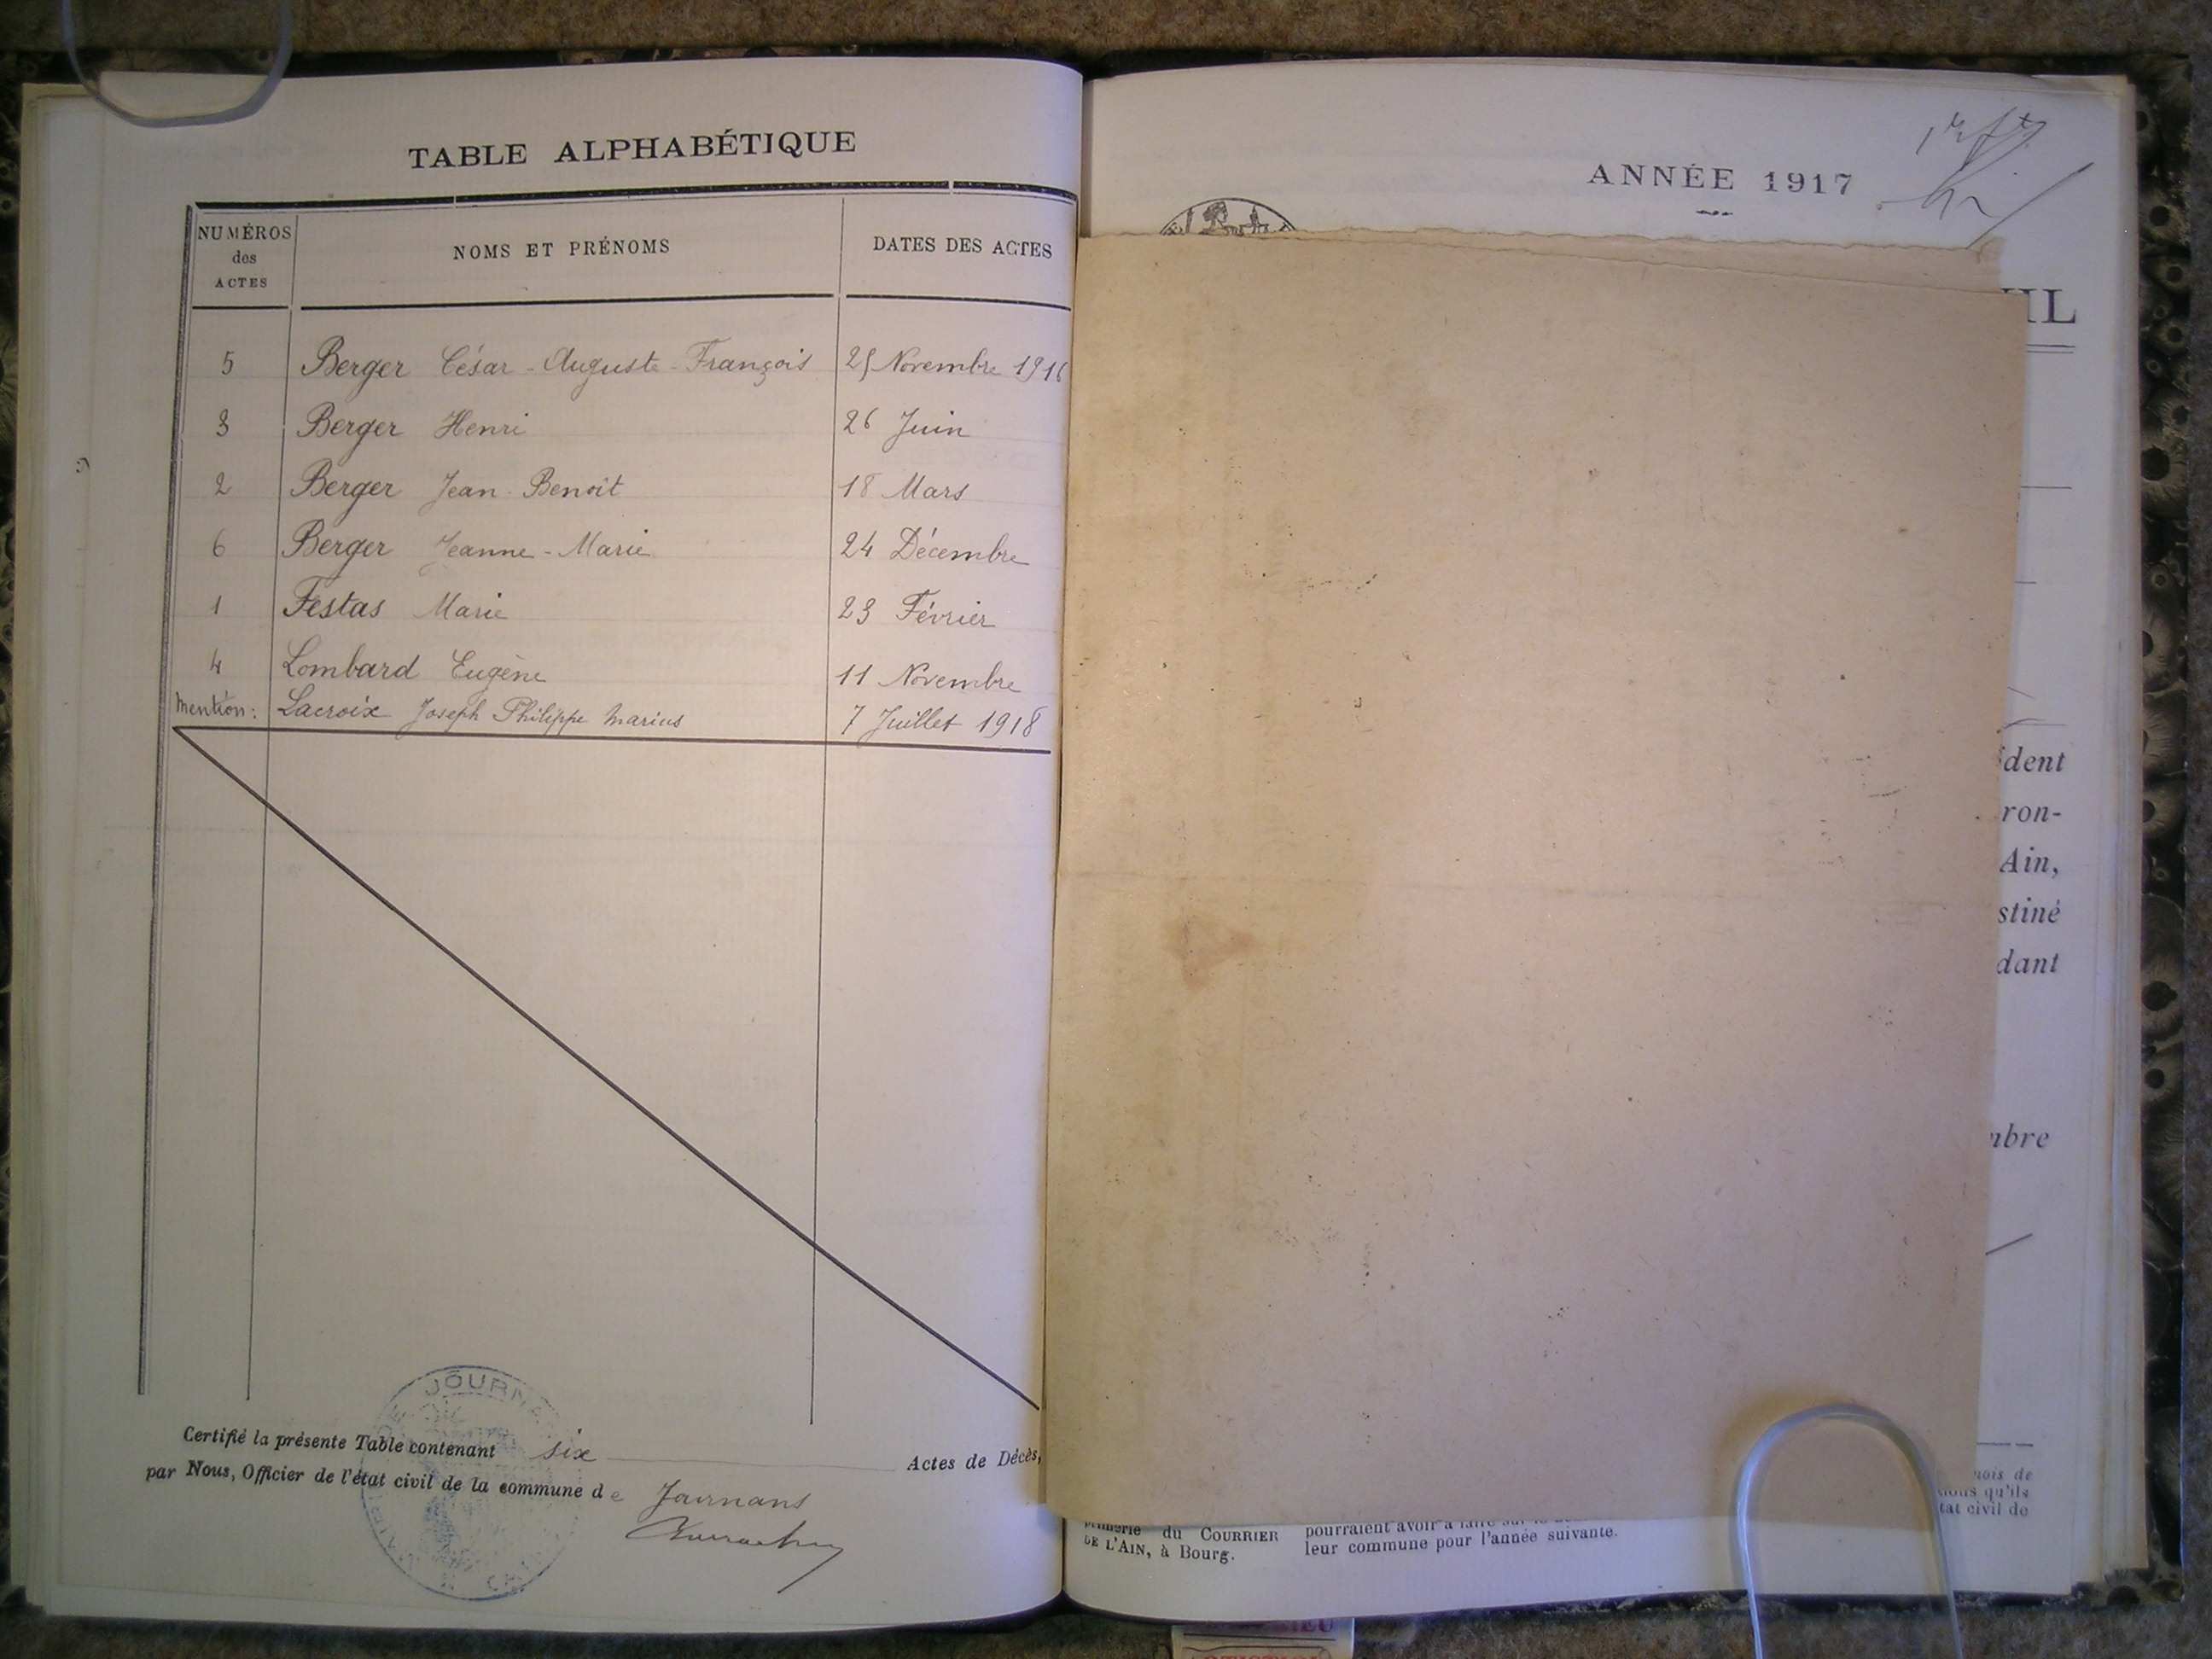 TABLE ALPHABÉTIQUE
NUMÉROS
des
ACTES
NOMS ET PRÉNOMS
DATES DES ACTES
5 Berger César-Auguste-François 25 Novembre 1916
3 Berger Henri 26 Juin
2 Berger Jean-Benoît 18 Mars
6 Berger Jeanne-Marie 24 Décembre
1 Festas Marie 23 Février
4 Lombard Eugène 11 Novembre
Mention: Lacroix Joseph Philippe Marius 7 Juillet 1918
Certifié la présente Table contenant six Actes de Décès,
par Nous, Officier de l'état civil de la commune de Journans
JOURNA
MAIRIE
ANNÉE 1917
IL
dent
ron-
Ain,
stiné
dant
mbre
mois de
qu'ils
tat civil de
du COURRIER
DE L'AIN, à Bourg.
pourraient avoir à faire sur
leur commune pour l'année suivante.